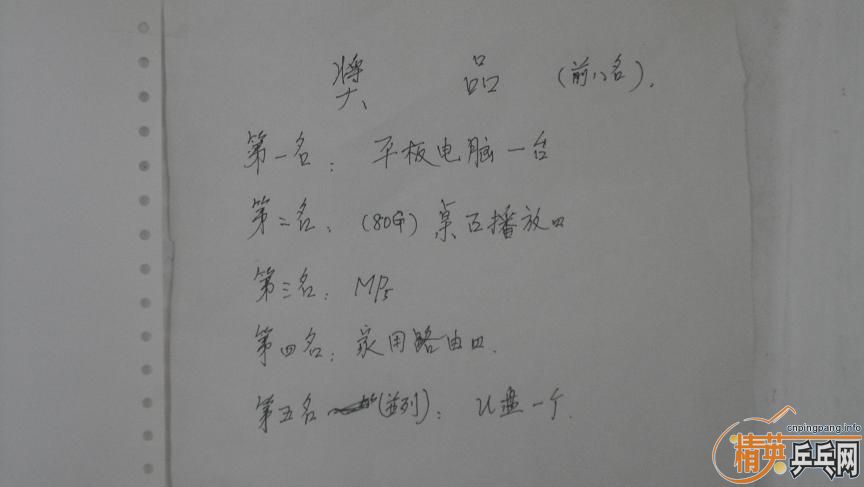 奖 品 (前八名).
第一名: 平板电脑一台
第二名: (80G) 桌面播放口
第三名: MP5
第四名: 家用路由口.
第五名 (并列): U盘一个.
cnpingpang.info
精英乒乓网